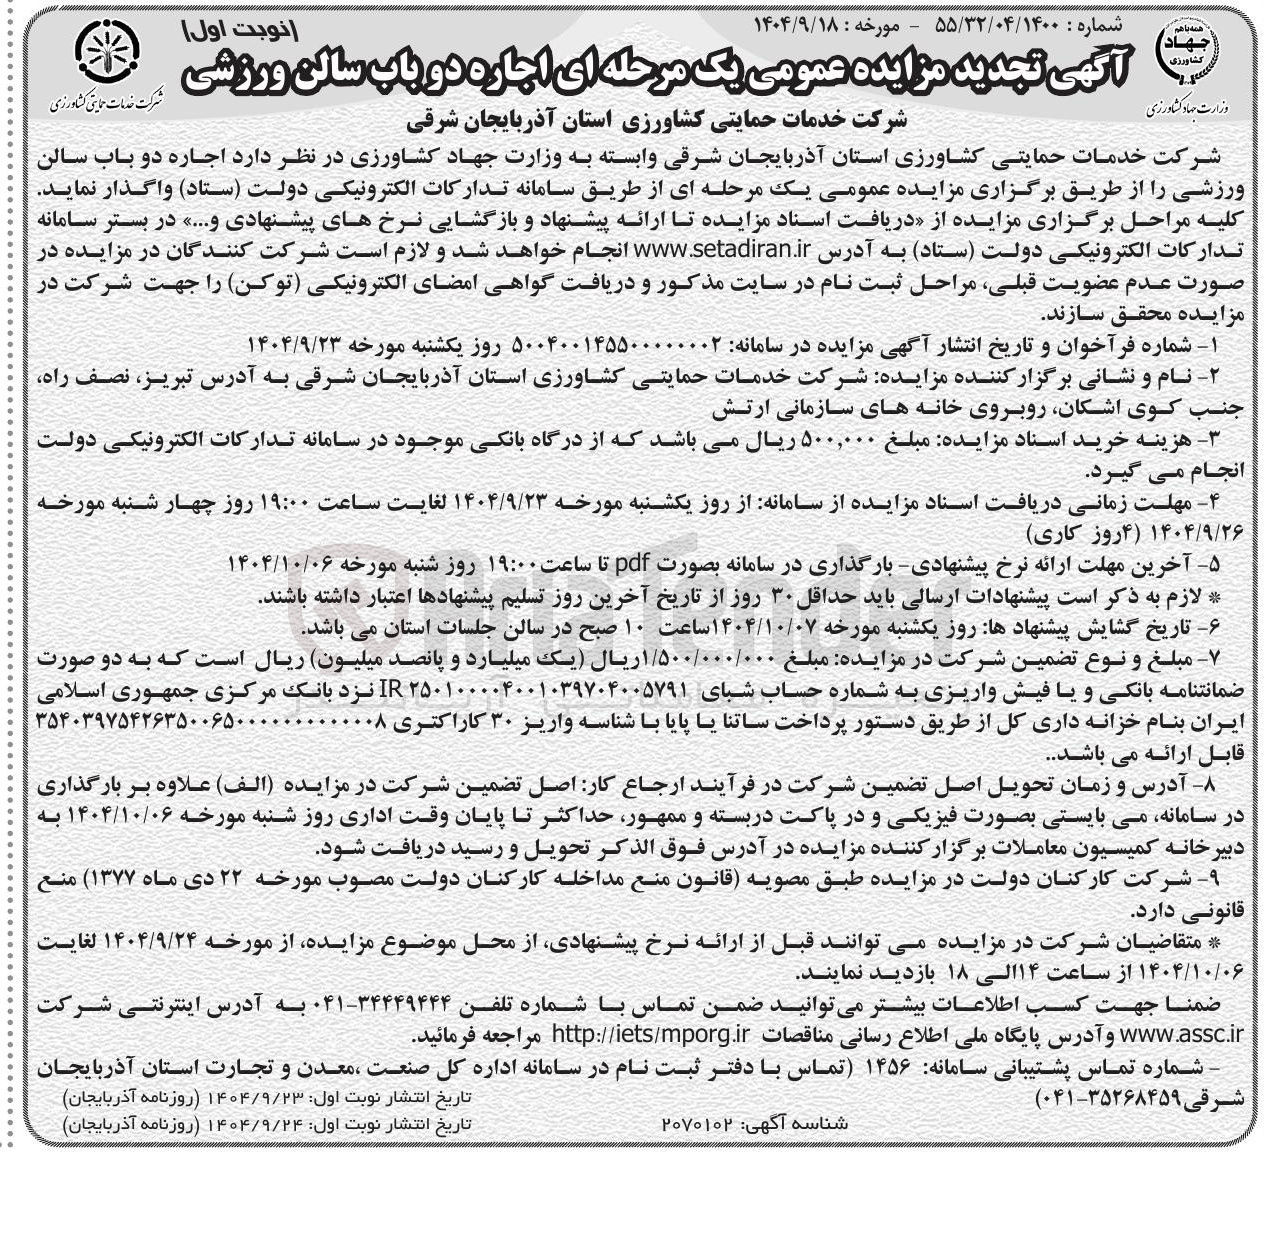 شماره : ۵۵/۳۲/۰۴/۱۴۰۰ - مورخه : ۱۴۰۴/۹/۱۸
(نوبت اول)
همه با هم
جهاد
کشاورزی
وزارت جهاد کشاورزی
شرکت خدمات حمایتی کشاورزی
آگهی تجدید مزایده عمومی یک مرحله ای اجاره دو باب سالن ورزشی
شرکت خدمات حمایتی کشاورزی استان آذربایجان شرقی
شرکت خدمات حمایتی کشاورزی استان آذربایجان شرقی وابسته به وزارت جهاد کشاورزی در نظر دارد اجاره دو باب سالن
ورزشی را از طریق برگزاری مزایده عمومی یک مرحله ای از طریق سامانه تدارکات الکترونیکی دولت (ستاد) واگذار نماید.
کلیه مراحل برگزاری مزایده از «دریافت اسناد مزایده تا ارائه پیشنهاد و بازگشایی نرخ های پیشنهادی و...» در بستر سامانه
تدارکات الکترونیکی دولت (ستاد) به آدرس www.setadiran.ir انجام خواهد شد و لازم است شرکت کنندگان در مزایده در
صورت عدم عضویت قبلی، مراحل ثبت نام در سایت مذکور و دریافت گواهی امضای الکترونیکی (توکن) را جهت شرکت در
مزایده محقق سازند.
۱- شماره فرآخوان و تاریخ انتشار آگهی مزایده در سامانه: ۵۰۰۴۰۰۱۴۵۵۰۰۰۰۰۰۰۲ روز یکشنبه مورخه ۱۴۰۴/۹/۲۳
۲- نام و نشانی برگزارکننده مزایده: شرکت خدمات حمایتی کشاورزی استان آذربایجان شرقی به آدرس تبریز، نصف راه،
جنب کوی اشکان، روبروی خانه های سازمانی ارتش
۳- هزینه خرید اسناد مزایده: مبلغ ۵۰۰,۰۰۰ ریال می باشد که از درگاه بانکی موجود در سامانه تدارکات الکترونیکی دولت
انجام می گیرد.
۴- مهلت زمانی دریافت اسناد مزایده از سامانه: از روز یکشنبه مورخه ۱۴۰۴/۹/۲۳ لغایت ساعت ۱۹:۰۰ روز چهار شنبه مورخه
۱۴۰۴/۹/۲۶ (۴روز کاری)
۵- آخرین مهلت ارائه نرخ پیشنهادی- بارگذاری در سامانه بصورت pdf تا ساعت۱۹:۰۰ روز شنبه مورخه ۱۴۰۴/۱۰/۰۶
* لازم به ذکر است پیشنهادات ارسالی باید حداقل۳۰ روز از تاریخ آخرین روز تسلیم پیشنهادها اعتبار داشته باشند.
۶- تاریخ گشایش پیشنهاد ها: روز یکشنبه مورخه ۱۴۰۴/۱۰/۰۷ساعت ۱۰ صبح در سالن جلسات استان می باشد.
۷- مبلغ و نوع تضمین شرکت در مزایده: مبلغ ۱/۵۰۰/۰۰۰/۰۰۰ریال (یک میلیارد و پانصد میلیون) ریال است که به دو صورت
ضمانتنامه بانکی و یا فیش واریزی به شماره حساب شبای IR ۲۵۰۱۰۰۰۰۴۰۰۱۰۳۹۷۰۴۰۰۵۷۹۱ نزد بانک مرکزی جمهوری اسلامی
ایران بنام خزانه داری کل از طریق دستور پرداخت ساتنا یا پایا با شناسه واریز ۳۰ کاراکتری ۳۵۴۰۳۹۷۵۴۲۶۳۵۰۰۶۵۰۰۰۰۰۰۰۰۰۰۰۰۸
قابل ارائه می باشد..
۸- آدرس و زمان تحویل اصل تضمین شرکت در فرآیند ارجاع کار: اصل تضمین شرکت در مزایده (الف) علاوه بر بارگذاری
در سامانه، می بایستی بصورت فیزیکی و در پاکت دربسته و ممهور، حداکثر تا پایان وقت اداری روز شنبه مورخه ۱۴۰۴/۱۰/۰۶ به
دبیرخانه کمیسیون معاملات برگزارکننده مزایده در آدرس فوق الذکر تحویل و رسید دریافت شود.
۹- شرکت کارکنان دولت در مزایده طبق مصوبه (قانون منع مداخله کارکنان دولت مصوب مورخه ۲۲ دی ماه ۱۳۷۷) منع
قانونی دارد.
* متقاضیان شرکت در مزایده می توانند قبل از ارائه نرخ پیشنهادی، از محل موضوع مزایده، از مورخه ۱۴۰۴/۹/۲۴ لغایت
۱۴۰۴/۱۰/۰۶ از ساعت ۱۴الی ۱۸ بازدید نمایند.
ضمنا جهت کسب اطلاعات بیشتر می‌توانید ضمن تماس با شماره تلفن ۳۴۴۴۹۴۴۴-۰۴۱ به آدرس اینترنتی شرکت
www.assc.ir وآدرس پایگاه ملی اطلاع رسانی مناقصات http://iets/mporg.ir مراجعه فرمائید.
- شماره تماس پشتیبانی سامانه: ۱۴۵۶ (تماس با دفتر ثبت نام در سامانه اداره کل صنعت ،معدن و تجارت استان آذربایجان
شرقی۳۵۲۶۸۴۵۹-۰۴۱)
تاریخ انتشار نوبت اول: ۱۴۰۴/۹/۲۳ (روزنامه آذربایجان)
شناسه آگهی: ۲۰۷۰۱۰۲
تاریخ انتشار نوبت اول: ۱۴۰۴/۹/۲۴ (روزنامه آذربایجان)